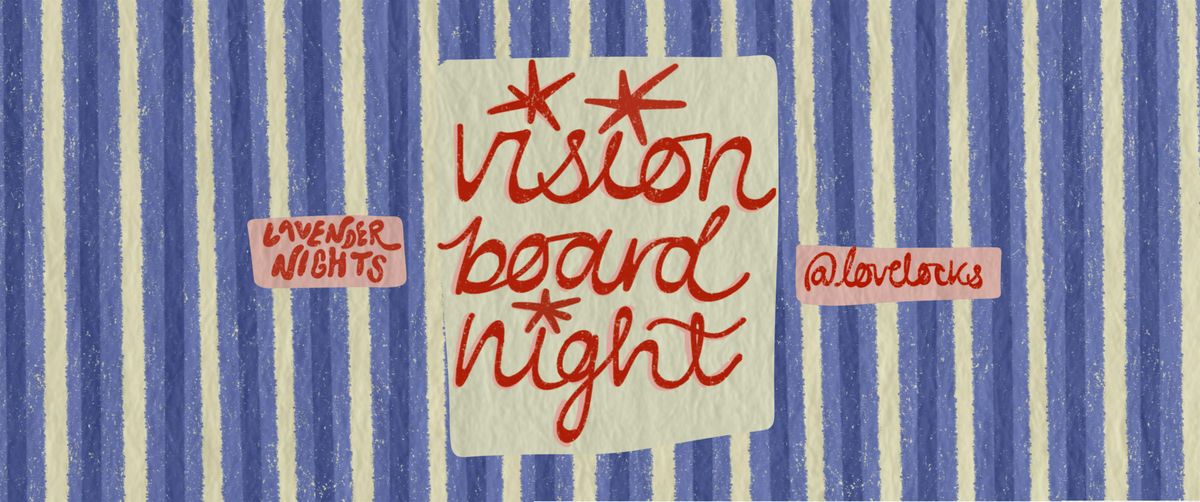 LAVENDER
NIGHTS
vision
board
night
@lovelocks